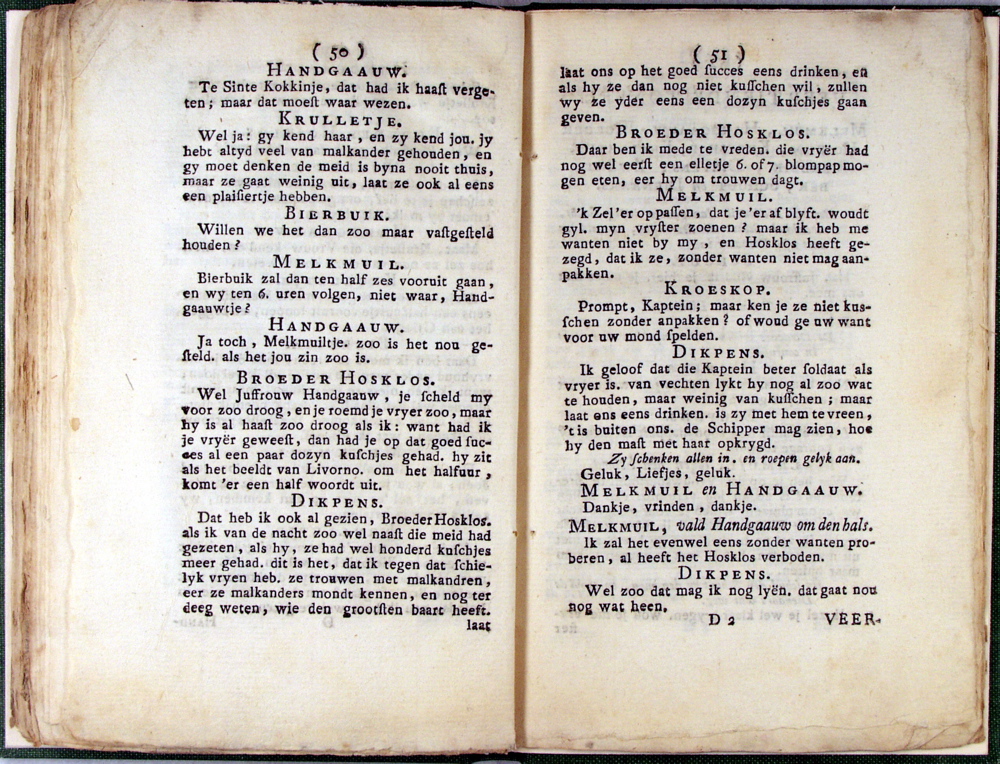 ( 50 )
HANDGAAUW.
Te Sinte Kokkinje, dat had ik haaſt verge-
ten; maar dat moeſt waar wezen.
KRULLETJE.
Wel ja: gy kend haar, en zy kend jou. jy
hebt altyd veel van malkander gehouden, en
gy moet denken de meid is byna nooit thuis,
maar ze gaat weinig uit, laat ze ook al eens
een plaiſiertje hebben.
BIERBUIK.
Willen we het dan zoo maar vaſtgeſteld
houden?
MELKMUIL.
Bierbuik zal dan ten half zes vooruit gaan,
en wy ten 6. uren volgen, niet waar, Hand-
gaauwtje?
HANDGAAUW.
Ja toch, Melkmuiltje. zoo is het nou ge-
ſteld. als het jou zin zoo is.
BROEDER HOSKLOS.
Wel Juffrouw Handgaauw, je ſcheld my
voor zoo droog, en je roemd je vryer zoo, maar
hy is al haaſt zoo droog als ik: want had ik
je vryër geweeſt, dan had je op dat goed ſuc-
ces al een paar dozyn kuſchjes gehad. hy zit
als het beeldt van Livorno. om het halfuur,
komt 'er een half woordt uit.
DIKPENS.
Dat heb ik ook al gezien, Broeder Hosklos.
als ik van de nacht zoo wel naaſt die meid had
gezeten, als hy, ze had wel honderd kuſchjes
meer gehad. dit is het, dat ik tegen dat ſchie-
lyk vryen heb. ze trouwen met malkandren,
eer ze malkanders mondt kennen, en nog ter
deeg weten, wie den grootſten baart heeft.
laat
( 51 )
laat ons op het goed ſucces eens drinken, en
als hy ze dan nog niet kuſſchen wil, zullen
wy ze yder eens een dozyn kuſchjes gaan
geven.
BROEDER HOSKLOS.
Daar ben ik mede te vreden. die vryër had
nog wel eerſt een elletje 6. of 7. blompap mo-
gen eten, eer hy om trouwen dagt.
MELKMUIL.
'k Zel 'er op paſſen, dat je 'er af blyft. woudt
gyl. myn vryſter zoenen? maar ik heb me
wanten niet by my, en Hosklos heeft ge-
zegd, dat ik ze, zonder wanten niet mag aan-
pakken.
KROESKOP.
Prompt, Kaptein; maar ken je ze niet kus-
ſchen zonder anpakken? of woud ge uw want
voor uw mond ſpelden.
DIKPENS.
Ik geloof dat die Kaptein beter ſoldaat als
vryer is. van vechten lykt hy nog al zoo wat
te houden, maar weinig van kuſſchen; maar
laat ons eens drinken. is zy met hem te vreen,
't is buiten ons. de Schipper mag zien, hoe
hy den maſt met haar opkrygd.
Zy ſchenken allen in. en roepen gelyk aan.
Geluk, Liefjes, geluk.
MELKMUIL en HANDGAAUW.
Dankje, vrinden, dankje.
MELKMUIL, vald Handgaauw om den hals.
Ik zal het evenwel eens zonder wanten pro-
beren, al heeft het Hosklos verboden.
DIKPENS.
Wel zoo dat mag ik nog lyën. dat gaat nou
nog wat heen.
D 2 VEER-